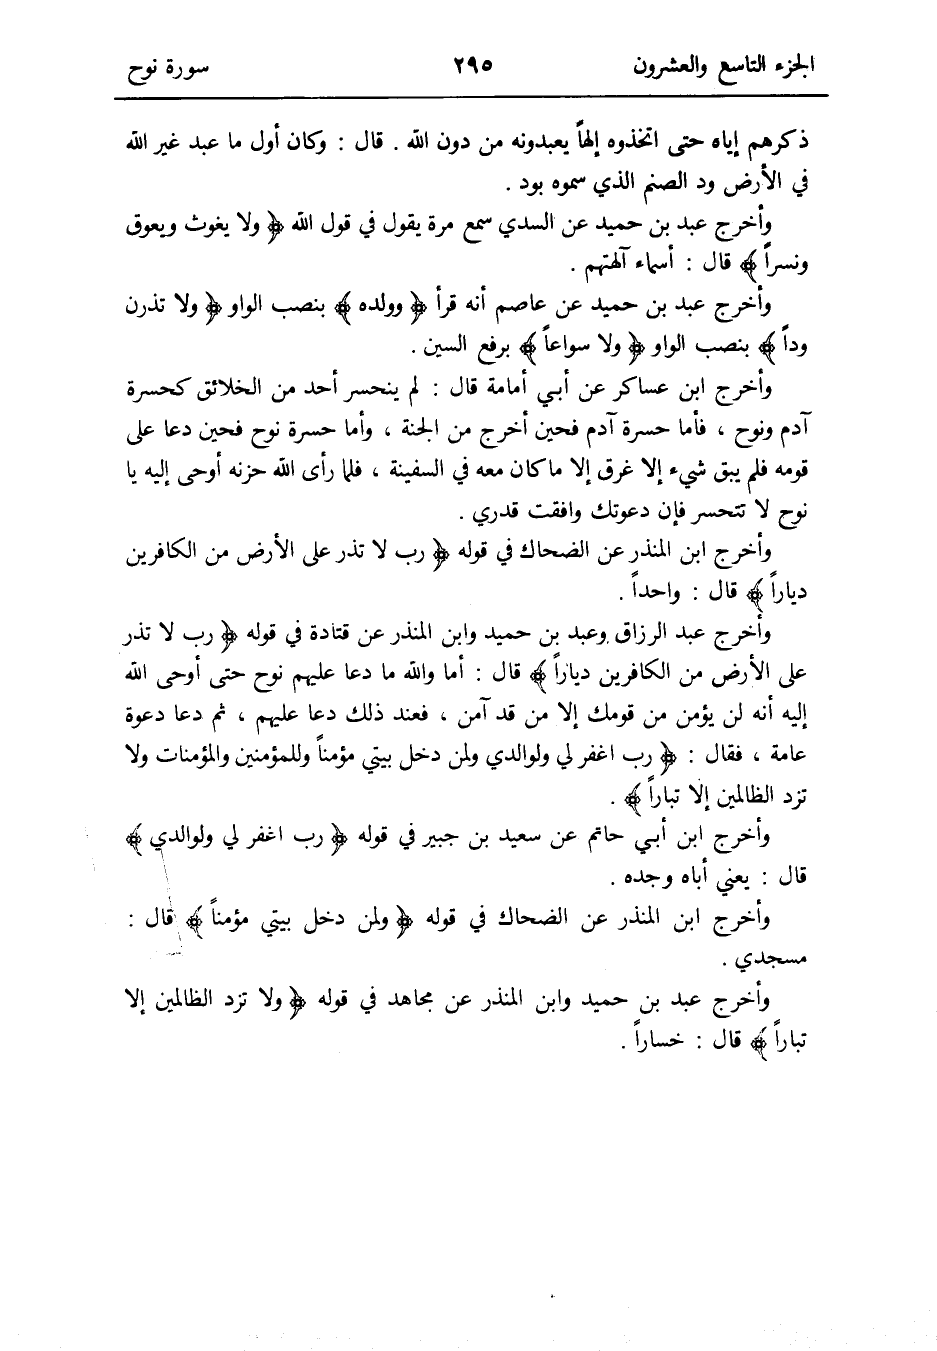 الجزء التاسع والعشرون ٢٩٥ سورة نوح
ذكرهم إياه حتى اتخذوه إلهاً يعبدونه من دون الله . قال : وكان أول ما عبد غير الله
في الأرض ود الصنم الذي سموه بود .
وأخرج عبد بن حميد عن السدي سمع مرة يقول في قول الله ﴿ ولا يغوث ويعوق
ونسراً ﴾ قال : أسماء آلهتهم .
وأخرج عبد بن حميد عن عاصم أنه قرأ ﴿ وولده ﴾ بنصب الواو ﴿ ولا تذرن
وداً ﴾ بنصب الواو ﴿ ولا سواعاً ﴾ برفع السين .
وأخرج ابن عساكر عن أبي أمامة قال : لم ينحسر أحد من الخلائق كحسرة
آدم ونوح ، فأما حسرة آدم فحين أخرج من الجنة ، وأما حسرة نوح فحين دعا على
قومه فلم يبق شيء إلا غرق إلا ما كان معه في السفينة ، فلما رأى الله حزنه أوحى إليه يا
نوح لا تتحسر فإن دعوتك وافقت قدري .
وأخرج ابن المنذر عن الضحاك في قوله ﴿ رب لا تذر على الأرض من الكافرين
دياراً ﴾ قال : واحداً .
وأخرج عبد الرزاق وعبد بن حميد وابن المنذر عن قتادة في قوله ﴿ رب لا تذر
على الأرض من الكافرين دياراً ﴾ قال : أما والله ما دعا عليهم نوح حتى أوحى الله
إليه أنه لن يؤمن من قومك إلا من قد آمن ، فعند ذلك دعا عليهم ، ثم دعا دعوة
عامة ، فقال : ﴿ رب اغفر لي ولوالدي ولمن دخل بيتي مؤمناً وللمؤمنين والمؤمنات ولا
تزد الظالمين إلا تباراً ﴾ .
وأخرج ابن أبي حاتم عن سعيد بن جبير في قوله ﴿ رب اغفر لي ولوالدي ﴾
قال : يعني أباه وجده .
وأخرج ابن المنذر عن الضحاك في قوله ﴿ ولمن دخل بيتي مؤمناً ﴾ قال :
مسجدي .
وأخرج عبد بن حميد وابن المنذر عن مجاهد في قوله ﴿ ولا تزد الظالمين إلا
تباراً ﴾ قال : خساراً .